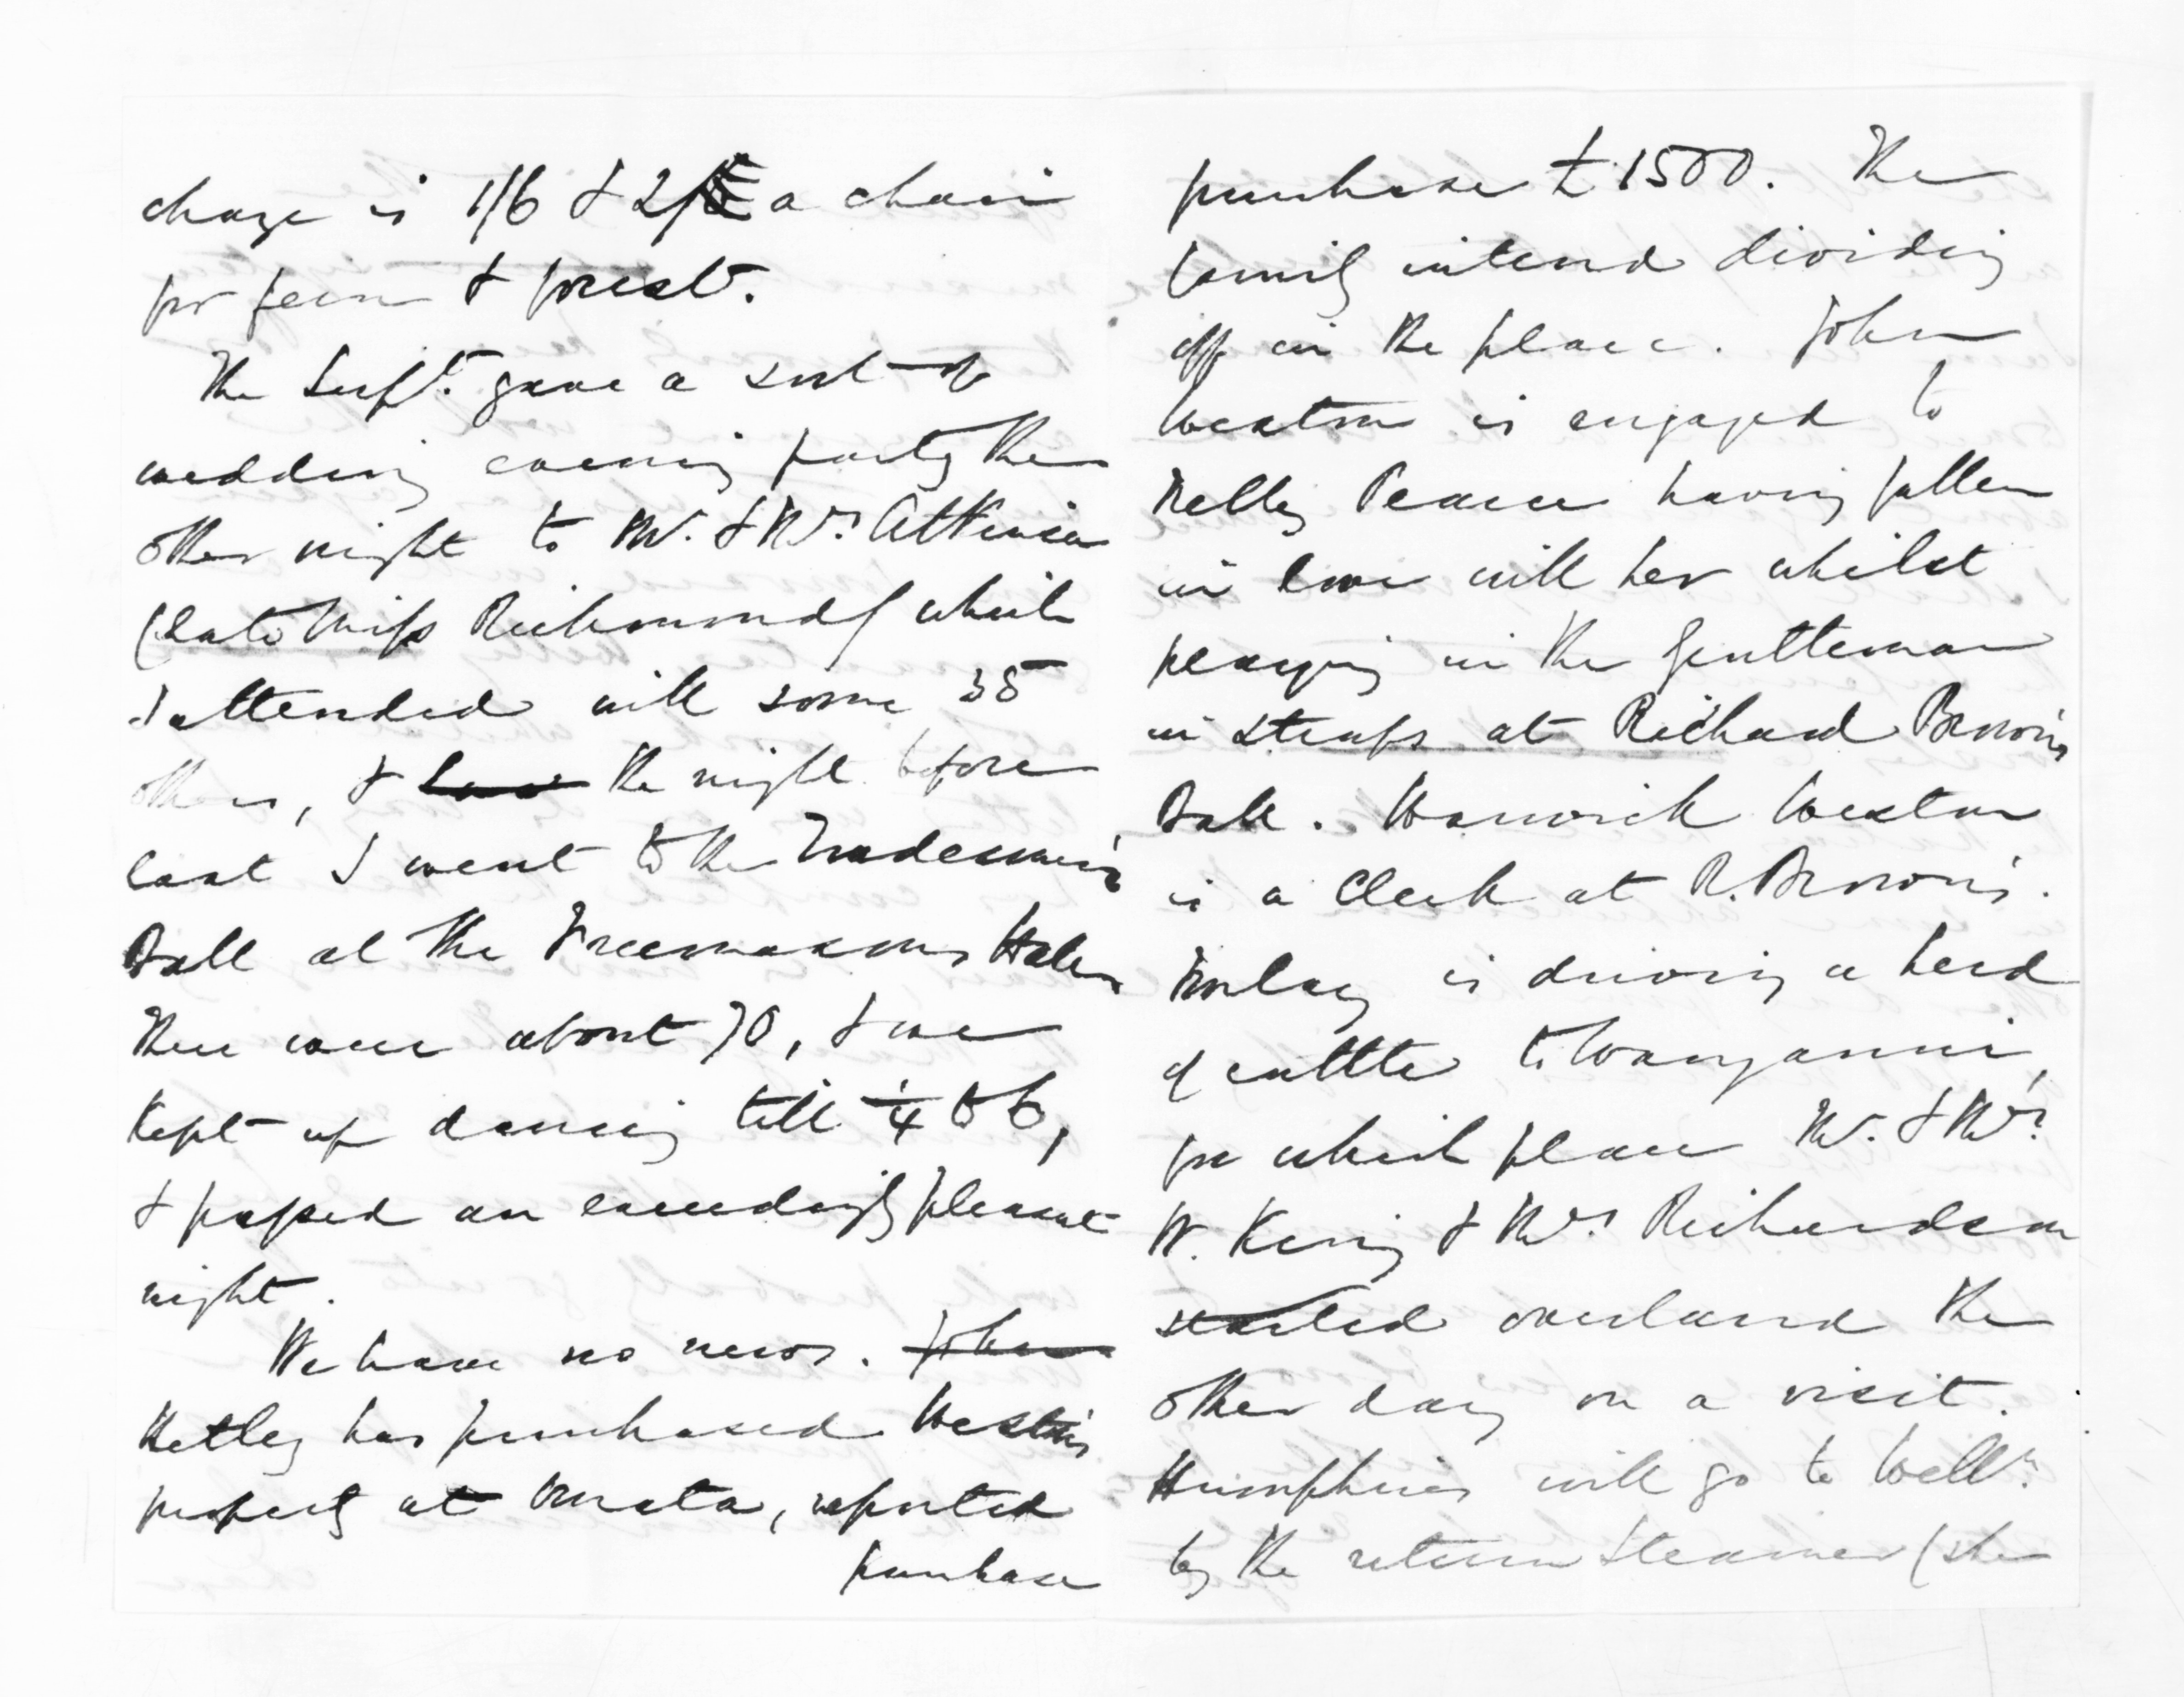 charge is 1/6 & 2/ a chain
for fern & forest.
The Supt. gave a sort of
wedding evening party the
other night to Mr. & Mrs. Atkinson
(late Miss Richmond) which
I attended with some 35
others, & the night before
last I went to the Tradesmen's
Ball at the Freemasons Hotel
There were about 70, & we
kept up dancing till 1/4 to 6,
& passed an exceedingly pleasant
night.
We have no news. John
Hetley has purchased Weston's
property at Omata, reported
purchase
purchase £1500. The
family intend dividing
off in the place. John
Weston is engaged to
Nelly Pearce having fallen
in love with her whilst
playing in the Gentleman
in Straps at Richard Brown's
Ball. Warwick Weston
is a Clerk at R. Brown's.
is driving a herd
of cattle to Wanganui,
for which place Mr. & Mrs.
W. King & Mrs. Richardson
started overland the
other day on a visit.
Humphries will go to Welln.
by the return steamer (she